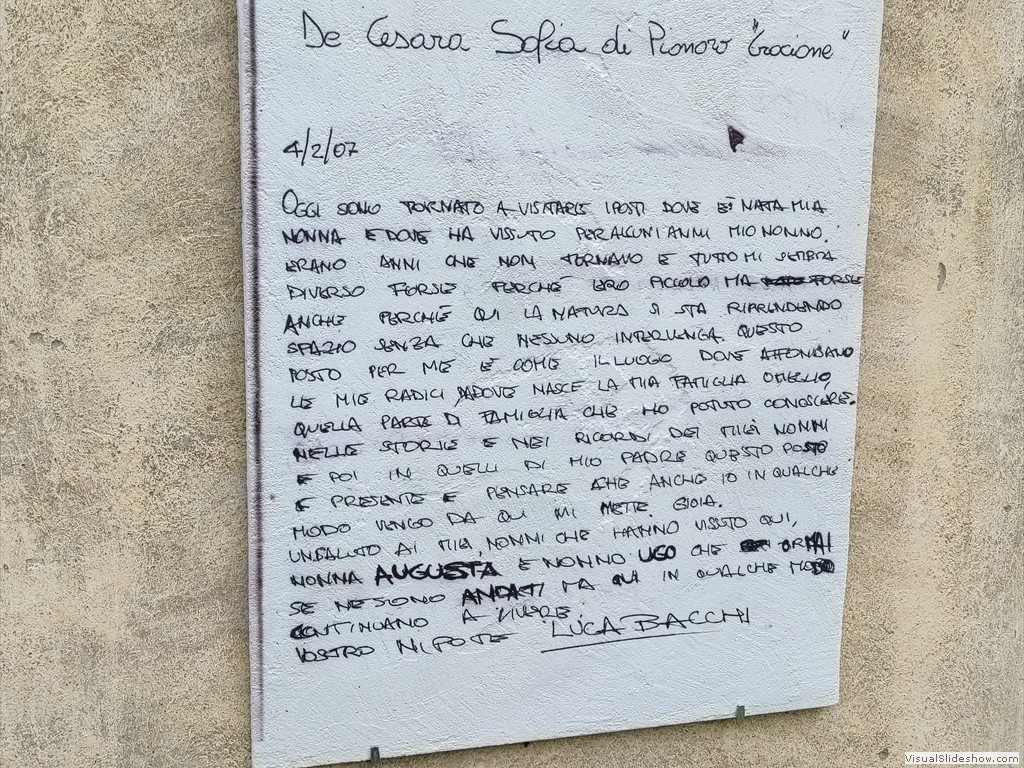 De Cesara Sofia di Pianoro "Crocione"
4/2/07
OGGI SONO TORNATO A VISITARE I POSTI DOVE E' NATA MIA
NONNA E DOVE HA VISSUTO PER ALCUNI ANNI MIO NONNO.
ERANO ANNI CHE NON TORNAVO E TUTTO MI SEMBRA
DIVERSO FORSE PERCHÉ ERO PICCOLO MA FORSE
ANCHE PERCHÉ QUI LA NATURA SI STA RIPRENDENDO
SPAZIO SENZA CHE NESSUNO INTERVENGA. QUESTO
POSTO PER ME È COME IL LUOGO DOVE AFFONDANO
LE MIE RADICI, DOVE NASCE LA MIA FAMIGLIA O MEGLIO,
QUELLA PARTE DI FAMIGLIA CHE HO POTUTO CONOSCERE.
NELLE STORIE E NEI RICORDI DEI MIEI NONNI
E POI IN QUELLI DI MIO PADRE QUESTO POSTO
È PRESENTE E PENSARE CHE ANCHE IO IN QUALCHE
MODO VENGO DA QUI MI METTE GIOIA.
UN SALUTO AI MIEI NONNI CHE HANNO VISSUTO QUI,
NONNA AUGUSTA E NONNO UGO CHE ORMAI
SE NE SONO ANDATI MA QUI IN QUALCHE MODO
CONTINUANO A VIVERE.
VOSTRO NIPOTE LUCA BACCHI
VisualSlideshow.com